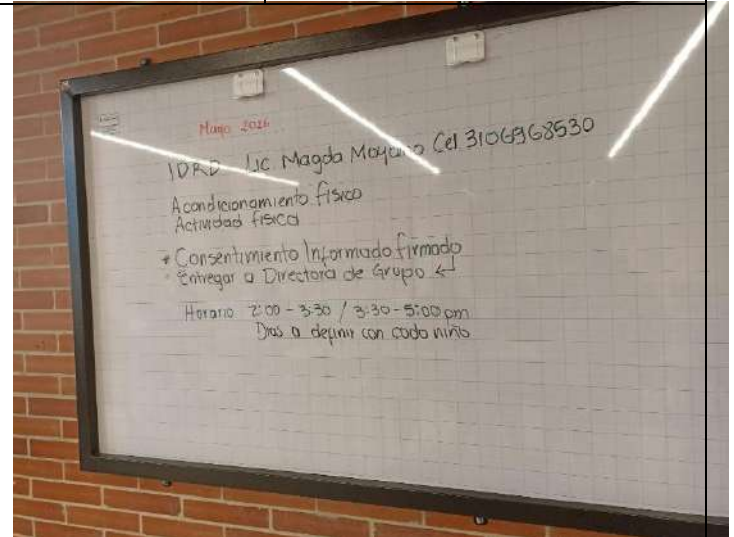 Mayo 2026
IDRD Lic. Magda Moyano Cel 3106968530
Acondicionamiento físico
Actividad física
* Consentimiento Informado firmado
Entregar a Directora de Grupo
Horario 2:00 - 3:30 / 3:30 - 5:00 pm
Dias a definir con cada niño